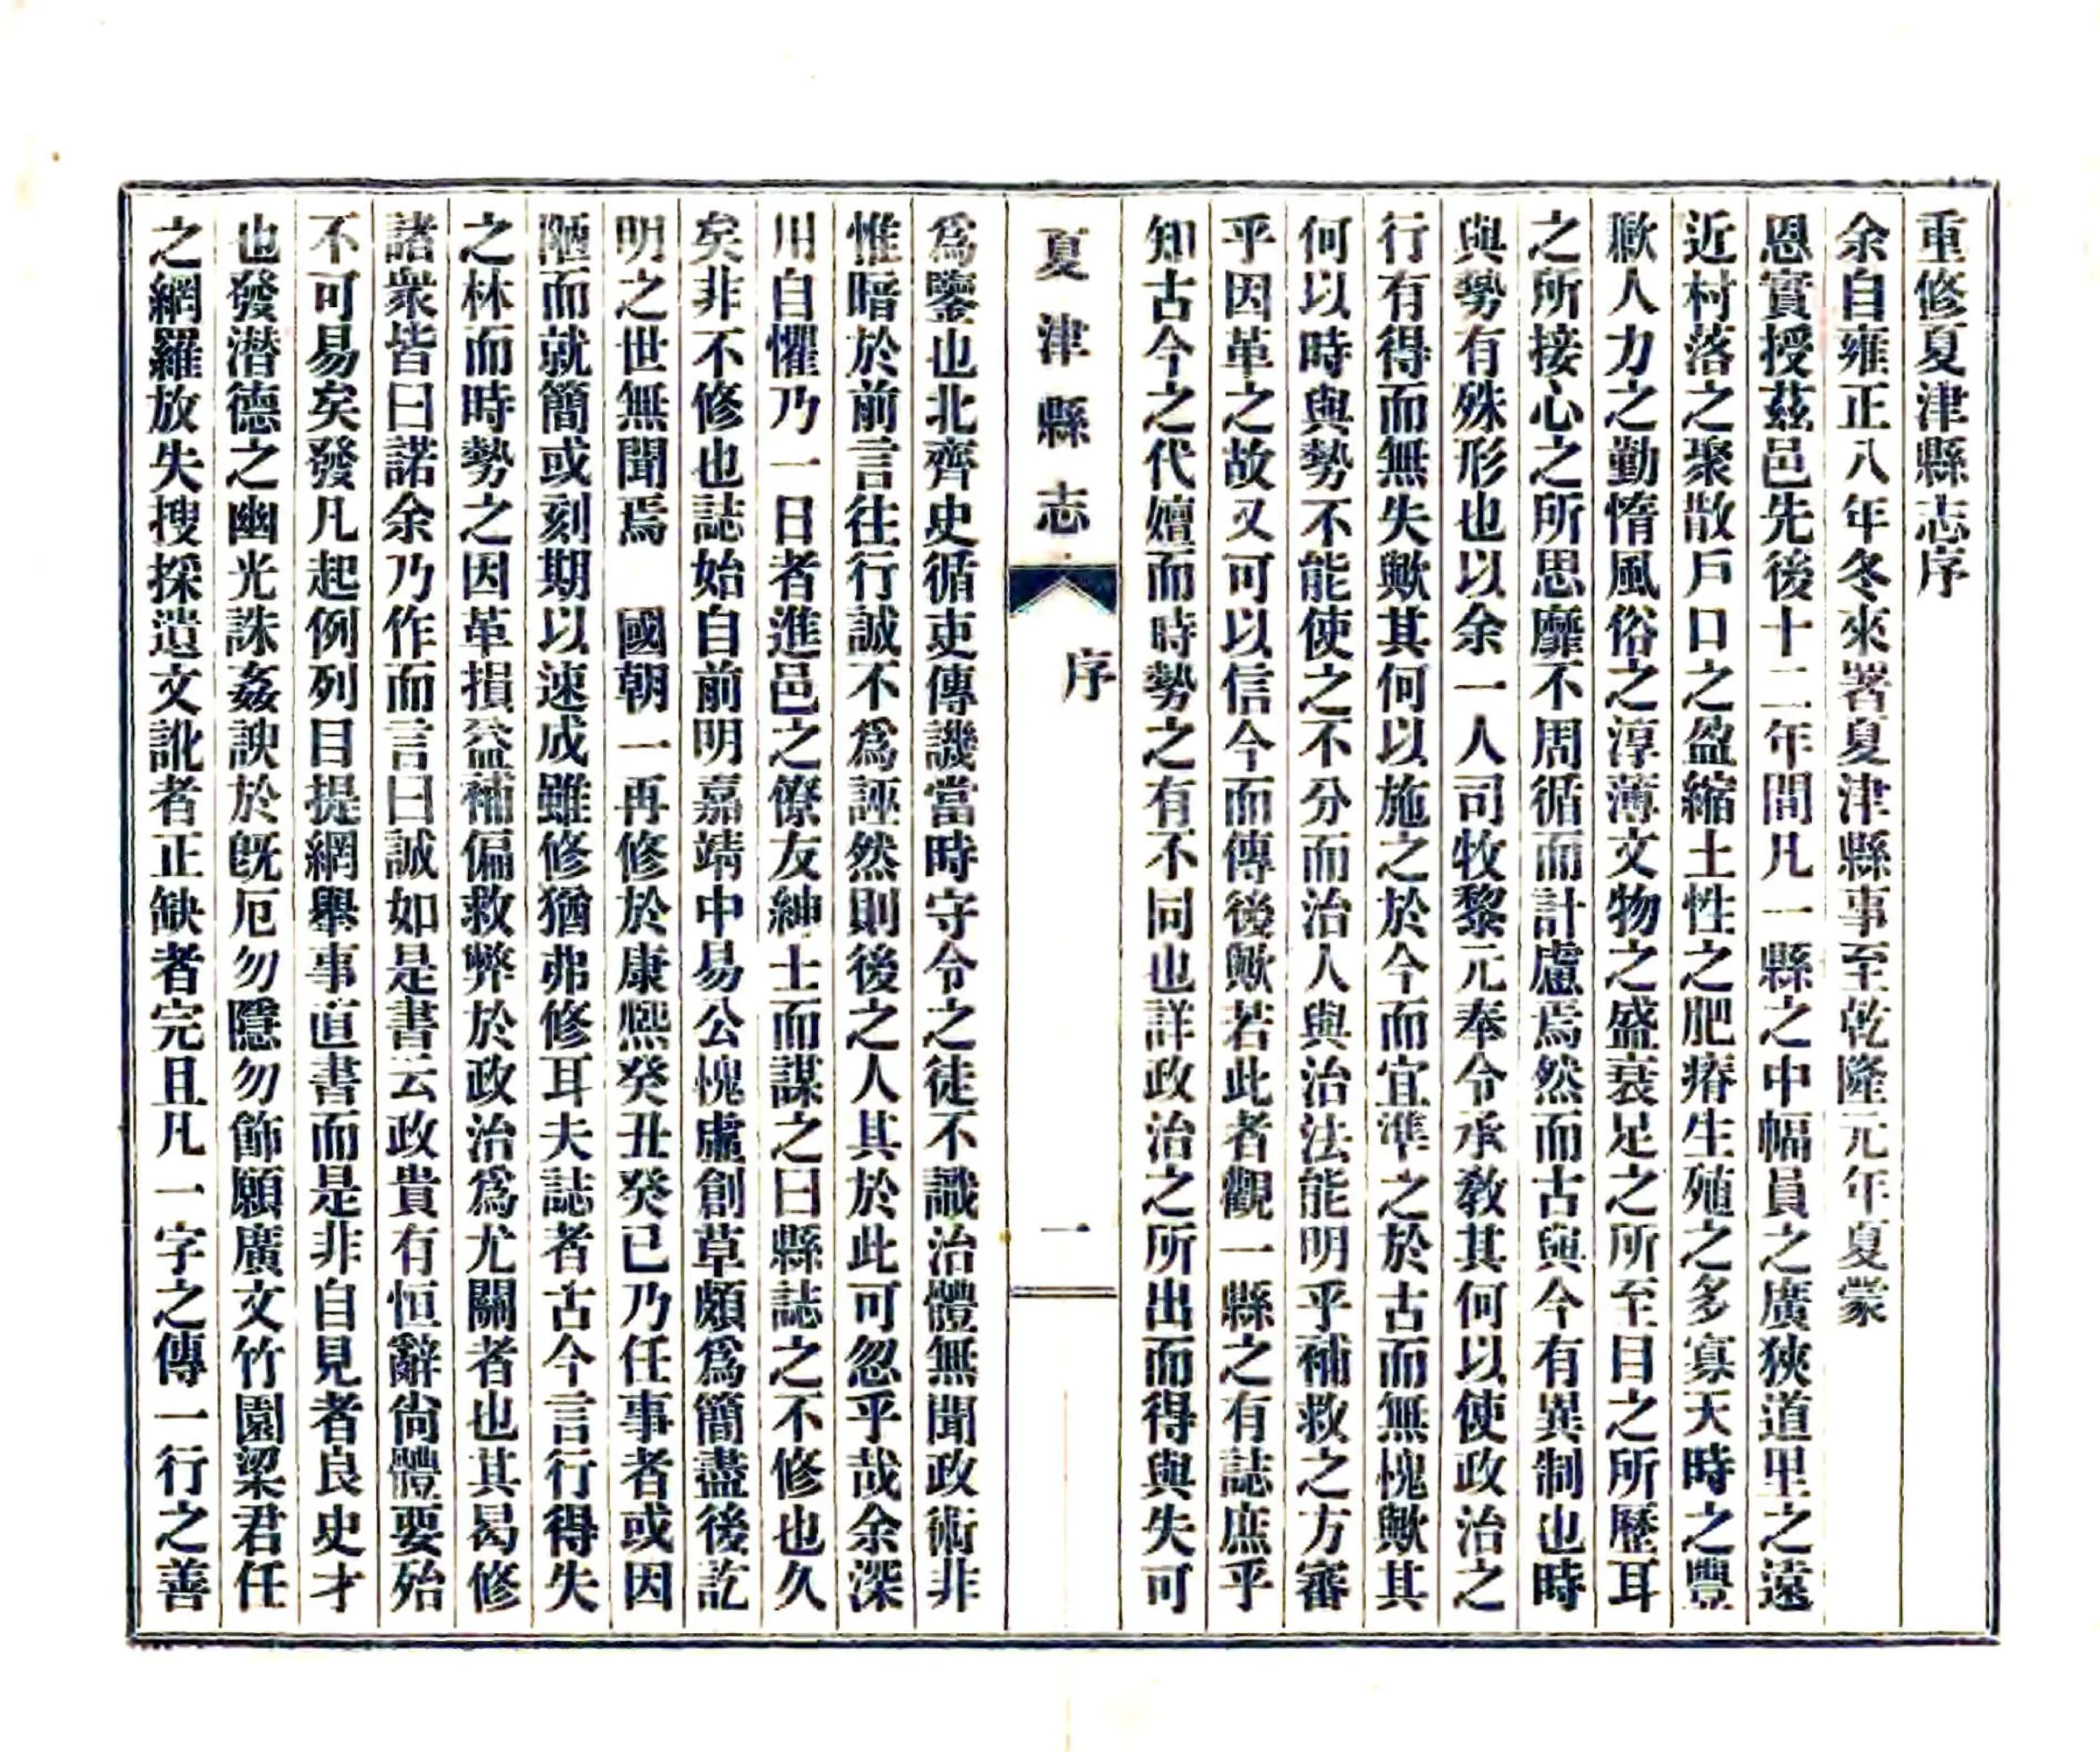 重修夏津縣志序
余自雍正八年冬來署夏津縣事至乾隆元年夏蒙
恩實授茲邑先後十二年間凡一縣之中幅員之廣狹道里之遠
近村落之聚散戶口之盈縮土性之肥瘠生殖之多寡天時之豐
歉人力之勤惰風俗之淳薄文物之盛衰足之所至目之所歷耳
之所接心之所思靡不周循而計慮焉然而古與今有異制也時
與勢有殊形也以余一人司牧黎元奉令承教其何以使政治之
行有得而無失歟其何以施之於今而宜準之於古而無愧歟其
何以時與勢不能使之不分而治人與治法能明乎補救之方審
乎因革之故又可以信今而傳後歟若此者觀一縣之有誌庶乎
知古今之代嬗而時勢之有不同也詳政治之所出而得與失可
夏津縣志
序
一
為鑒也北齊史循吏傳譏當時守令之徒不識治體無聞政術非
惟暗於前言往行誠不為誣然則後之人其於此可忽乎哉余深
用自懼乃一日者進邑之僚友紳士而謀之曰縣誌之不修也久
矣非不修也誌始自前明嘉靖中易公愧虛創草頗為簡盡後訖
明之世無聞焉　國朝一再修於康熙癸丑癸巳乃任事者或因
陋而就簡或刻期以速成雖修猶弗修耳夫誌者古今言行得失
之林而時勢之因革損益補偏救弊於政治為尤關者也其曷修
諸衆皆曰諾余乃作而言曰誠如是書云政貴有恒辭尚體要殆
不可易矣發凡起例列目提網舉事直書而是非自見者良史才
也發潜德之幽光誅姦諛於旣厄勿隱勿飾願廣文竹園梁君任
之網羅放失搜採遺文訛者正缺者完且凡一字之傳一行之善